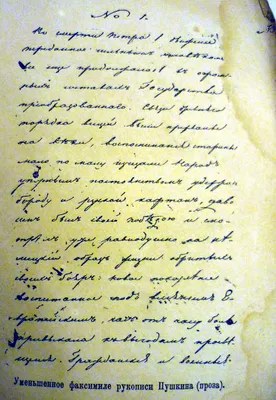 No 1.
По смерти Петра I движенiе
переданное сильнымъ человѣкомъ
все еще продолжалось въ огром-
ныхъ составахъ Государства
преобразованнаго. Связи древняго
порядка вещей были прерваны
на вѣки, воспоминанiя старины
мало по малу исчезали. Народъ
упорнымъ постоянствомъ удержавъ
бороду и руской кафтанъ дово-
ленъ былъ своей побѣдою и смо-
трѣлъ уже равнодушно на нѣ-
мецкiй образъ жизни обритыхъ
своихъ бояръ. новое поколѣнiе
воспитанное подъ влiянiемъ Е-
вропейскимъ часъ отъ часу болѣе
привыкало къ выгодамъ просвѣ-
щенiя. Гражданскiе и военные
Уменьшенное факсимиле рукописи Пушкина (проза).